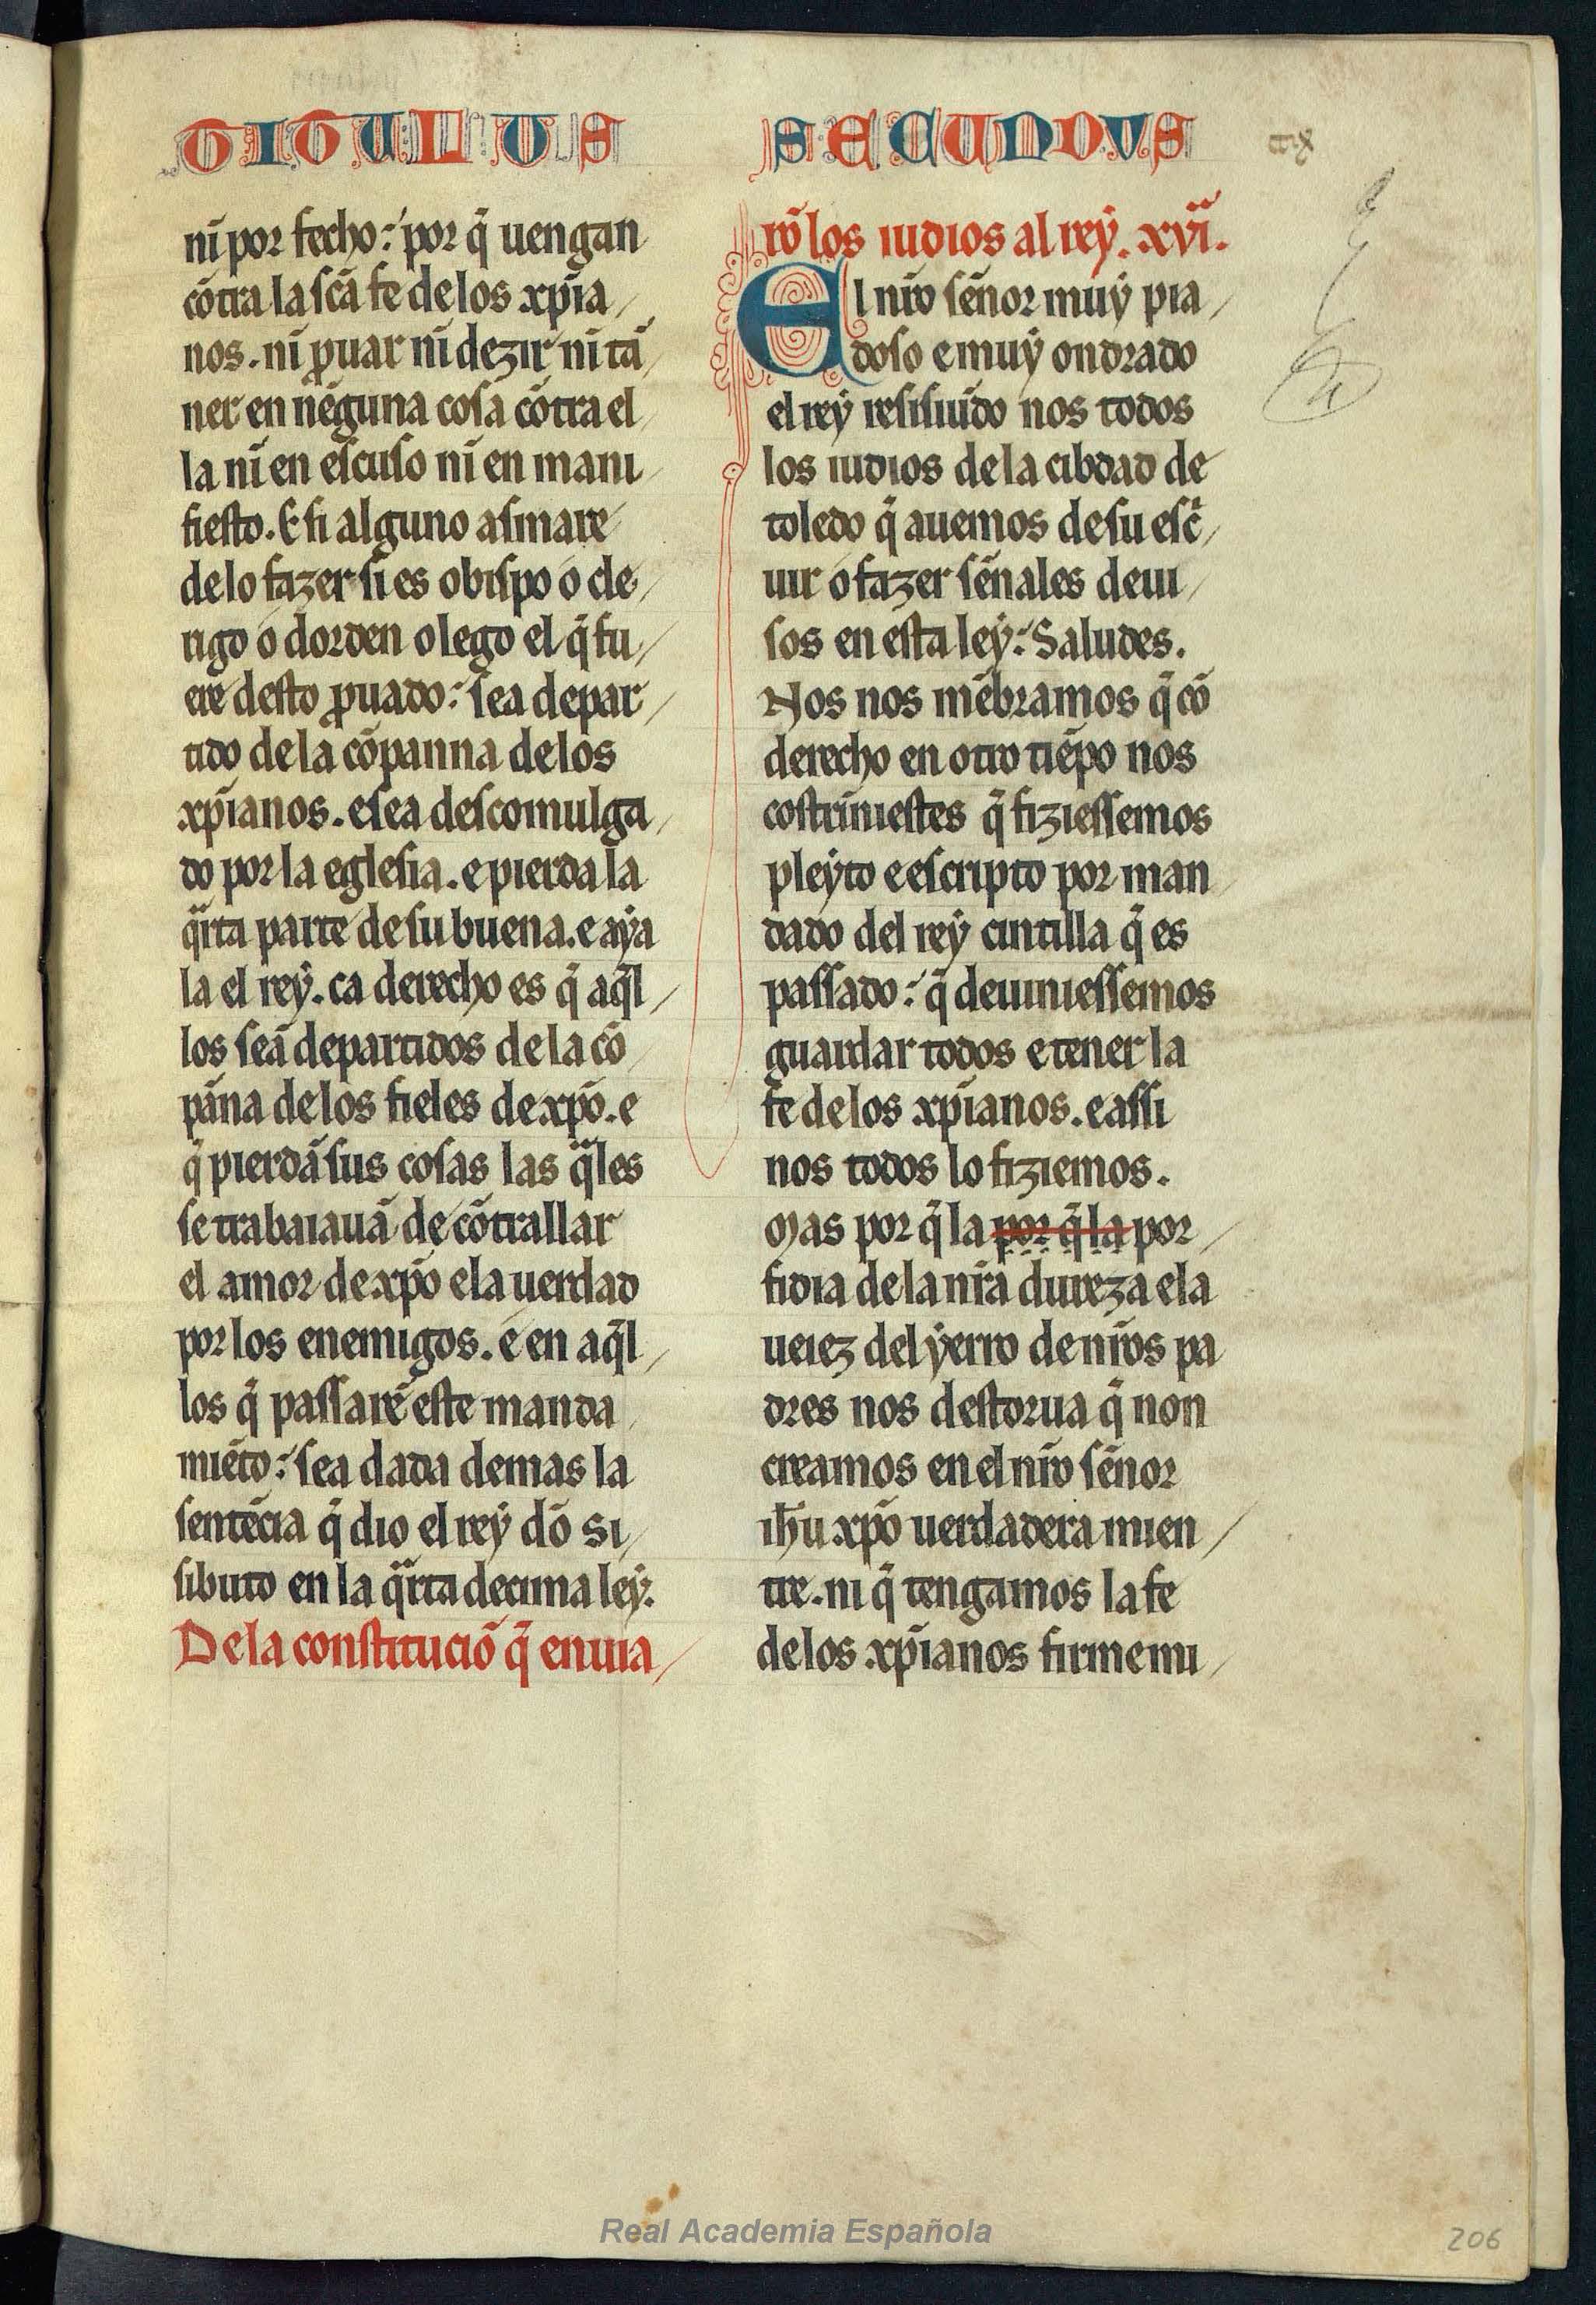 TITULUS
SECUNDVS
ni por fecho: por q̃ uengan
cõtra la scã fe de los xp̃ia
nos. ni ꝓuar ni dezir ni tã
ner en nẽguna cosa cõtra el
la ni en escuso ni en mani
fiesto. E si alguno asmare
de lo fazer si es obispo o cle
rigo o dorden o lego el q̃ fu
ere desto ꝓuado: sea depar
tido de la cõpanna de los
xp̃ianos. e sea descomulga
do por la eglesia. e pierda la
qͣrta parte de su buena. e aẏa
la el reẏ. ca derecho es q̃ aq̃l
los seã departidos de la cõ
pãna de los fieles de xp̃o. e
q̃ pierdã sus cosas las qͣles
se trabaiauã de cõtrallar
el amor de xp̃o e la uerdad
por los enemigos. e en aq̃l
los q̃ passarẽ este manda
miẽto: sea dada demas la
sentẽcia q̃ dio el reẏ dõ si
sibuto en la qͣrta decima leẏ.
De la constituciõ q̃ enuia
rõ los iudios al reẏ. xvi.
El nr̃o sẽnor muẏ pia
doso e muẏ ondrado
el reẏ resisiuido nos todos
los iudios de la cibdad de
toledo q̃ auemos de su esc̃
uir o fazer sẽnales deui
sos en esta leẏ: Saludes.
Nos nos mẽbramos q̃ cõ
derecho en otro tiẽpo nos
costrĩniestes q̃ fiziessemos
pleẏto e escripto por man
dado del reẏ cintilla q̃ es
passado: q̃ deuiniessemos
guardar todos e tener la
fe de los xp̃ianos. e assi
nos todos lo fiziemos.
Mas por q̃ la por q̃ la por
fidia de la nr̃a dureza e la
ueiez del ẏerro de nr̃os pa
dres nos destorua q̃ non
creamos en el nr̃o sẽnor
ih̃u xp̃o uerdadera mien
tre. ni q̃ tengamos la fe
de los xp̃ianos firme mi
Real Academia Española
206